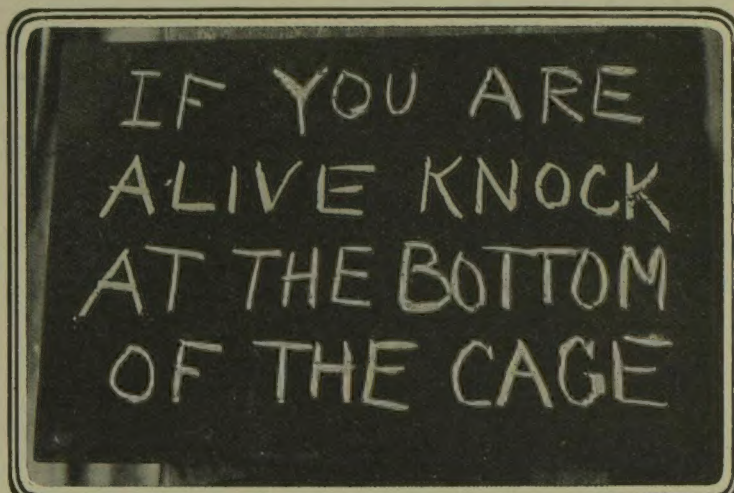 IF YOU ARE
ALIVE KNOCK
AT THE BOTTOM
OF THE CAGE